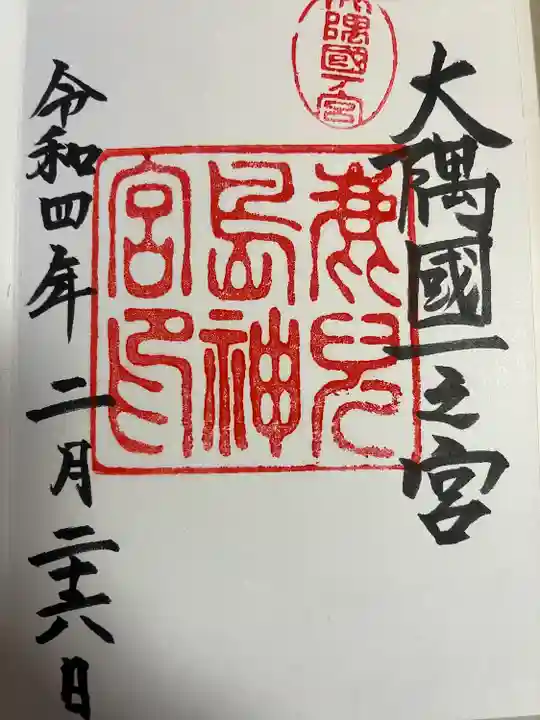 大隅國一之宮
隅國一宮
鹿兒
島神
宮印
令和四年二月二十六日